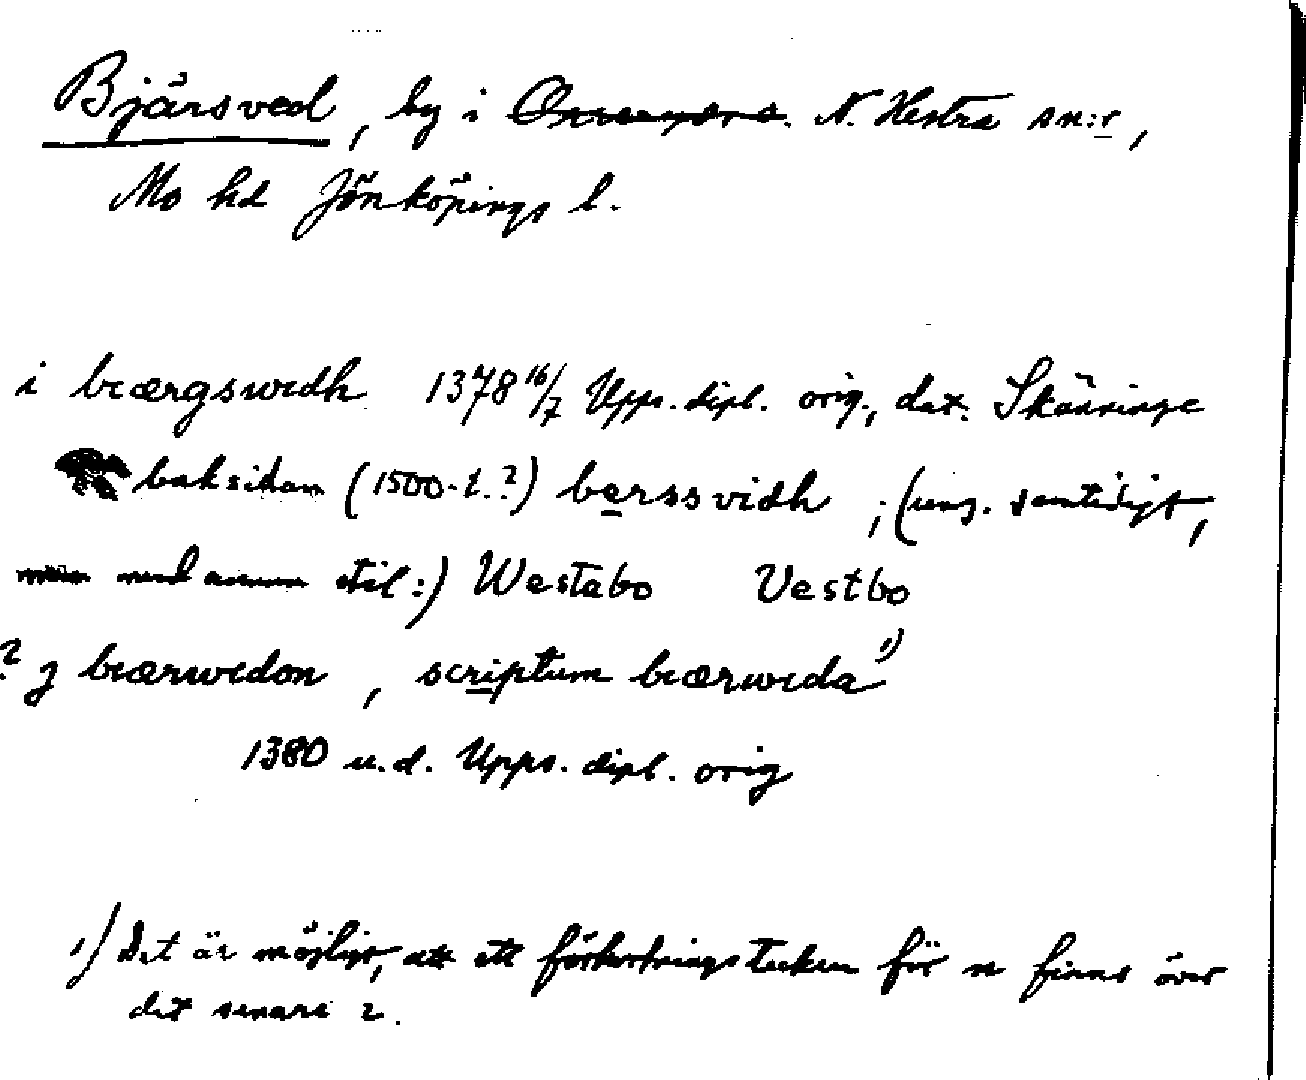 Bjärsved, by i N. Hestra sn:r,
Mo hd Jönköpings l.
i beærgswedh 1378 16/7 Upps. dipl. orig., dat. Skänninge
baksidan (1500-t.?) berssvidh ; (ung. samtidigt,
med annan stil:) Westabo Vestbo
? j beærwedon , scriptum beærweda 1)
1380 u.d. Upps. dipl. orig
1) Det är möjligt, att ett förkortningstecken för n finns över
det senare e.